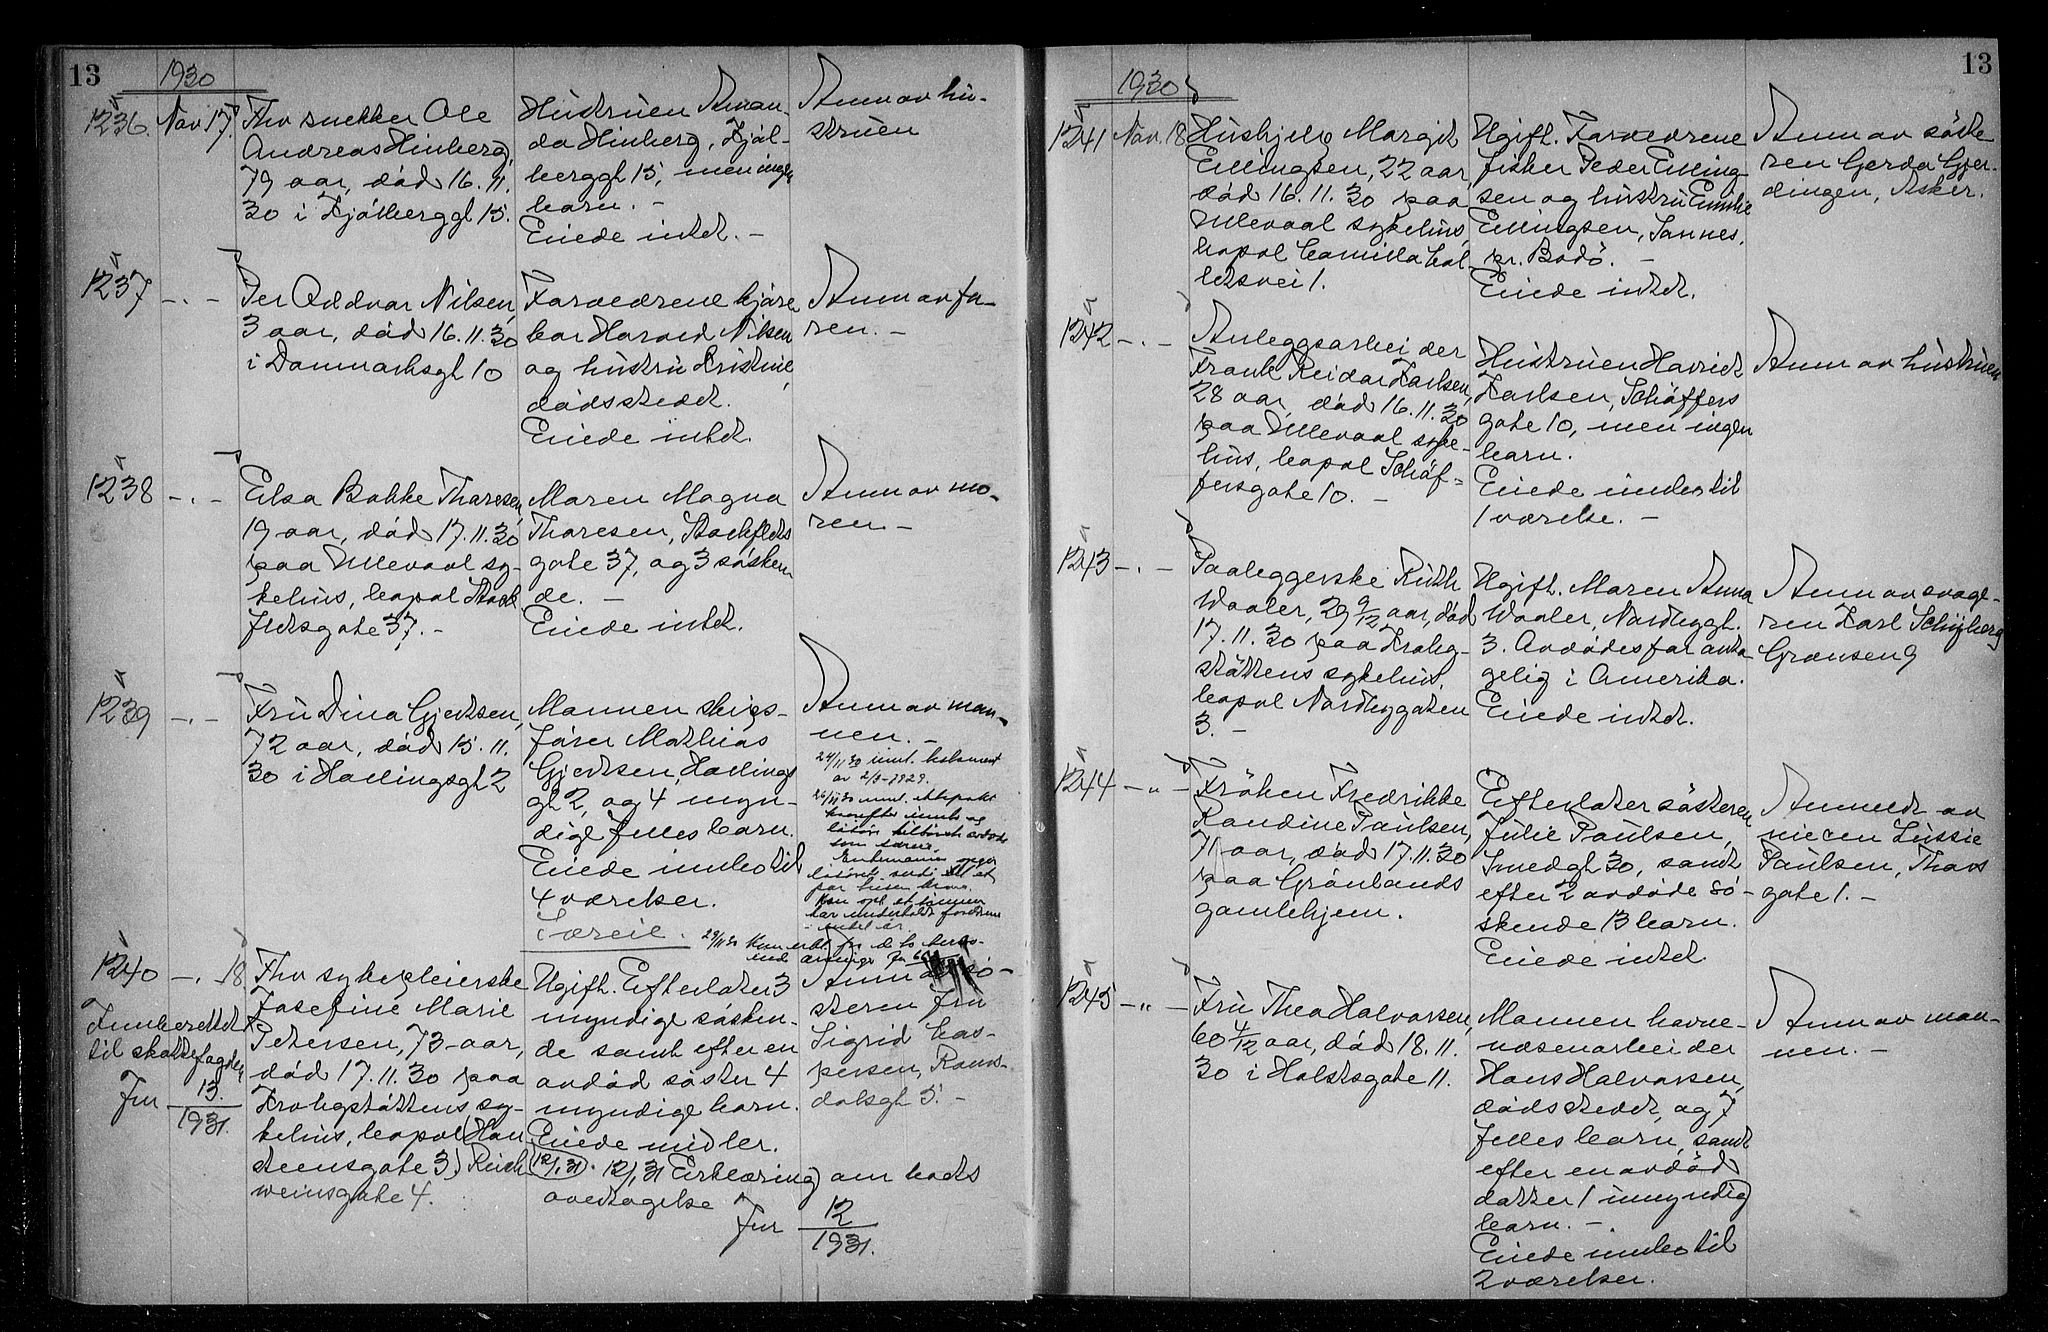 13
1930
1236. Nov 17.
Fhv snekker Ole
Andreas Hinberg,
79 aar, död 16.11.
30 i Kjölberggt 15.
Hustruen Aman-
da Hinberg, Kjöl-
berggt 15, men ingen
barn. -
Eiede intet. -
Anm av hu-
struen
1237 -.-
Per Oddvar Nilsen,
3 aar, död 16.11.30
i Danmarksgt 10
Forældrene kjöre
kar Harald Nilsen
og hustru Kristine,
dödsstedet.
Eiede intet.
Anm av fa-
ren. -
1238 -.-
Elsa Bakke Thoresen,
19 aar, död 17.11.30
paa Ullevaal sy-
kehus, bopæl Stock
fletsgate 37. -
Maren Magna
Thoresen, Stockflets
gate 37, og 3 sösken
de. -
Eiede intet.
Anm av mo-
ren. -
1239 -.-
Fru Dina Gjertsen,
72 aar, död 15.11.
30 i Hallingsgt 2
Mannen skips-
förer Mathias
Gjertsen, Hallings
gt 2, og 4 myn-
dige felles barn.
Eiede innbo til
4 værelser.
Særeie.
Anm av man-
nen. -
24/11 30 innl. testament
av 2/3-1929.
26/11 30 innl. ektepakt
hvorefter innbo og
lösöre tilhörte avdöde
som særeie.
har underholdt foreldrene
i endel aar.
1240 -. 18
Innberettet
til skattefogden
Jnr 13/1931.
Fhv sykepleierske
Josefine Marie
Petersen, 73 aar,
död 17.11.30 paa
Krohgstöttens sy-
kehus, bopæl (Han
steensgate 3) Reich
weinsgate 4.
Ugift. Efterlater 3
myndige sösken-
de samt efter en
avdöd söster 4
myndige barn.
Eiede midler.
12/1 31. 12/1 31 Erklæring om boets
overtagelse
Jnr 12/1931.
Anm av sö-
steren fru
Sigrid Cas-
persen, Roms-
dalsgt 5. -
13
1930
1241 Nov. 18
Hushjelp Margit
Ellingsen, 22 aar,
död 16.11.30 paa
Ullevaal sykehus,
bopæl Camilla Col
letsvei 1.
Ugift. Forældrene
fisker Peder Elling-
sen og hustru Emilie
Ellingsen, Sannes,
pr. Bodö. -
Eiede intet.
Anm av söste
ren Gerda Gjer-
dingen, Asker.
1242 -.-
Anleggsarbeider
Frank Reidar Karlsen,
28 aar, död 16.11.30
paa Ullevaal syke-
hus, bopæl Schöf-
fersgate 10. -
Hustruen Harriet
Karlsen, Schöffers
gate 10, men ingen
barn.
Eiede innbo til
1 værelse. -
Anm av hustruen
1243 -.-
Paaleggerske Ruth
Waaler, 29 9/12 aar, död
17.11.30 paa Krohg-
stöttens sykehus,
bopæl Nordbygaten
3. -
Ugift. Maren Anna
Waaler, Nordbygt.
3. Avdödes far anta
gelig i Amerika.
Eiede intet.
Anm av svoge-
ren Karl Schjberg
Grensen 9
1244 -"-
Fröken Fredrikke
Randine Paulsen,
71 aar, död 17.11.30
paa Grönlands
gamlehjem.
Efterlater sösteren
Julie Paulsen,
Smedgt 30, samt
efter 2 avdöde sö-
skende 13 barn.
Eiede intet
Anmeldt av
niecen Lussie
Paulsen, Thors
gate 1. -
1245 -"-
Fru Thea Halvorsen,
60 4/12 aar, död 18.11.
30 i Holstsgate 11.
Mannen havne-
vesenarbeider
Hans Halvorsen,
dödsstedet, og 7
felles barn, samt
efter en avdöd
datter 1 umyndig
barn. -
Eiede innbo til
2 værelser.
Anm av man-
nen. -